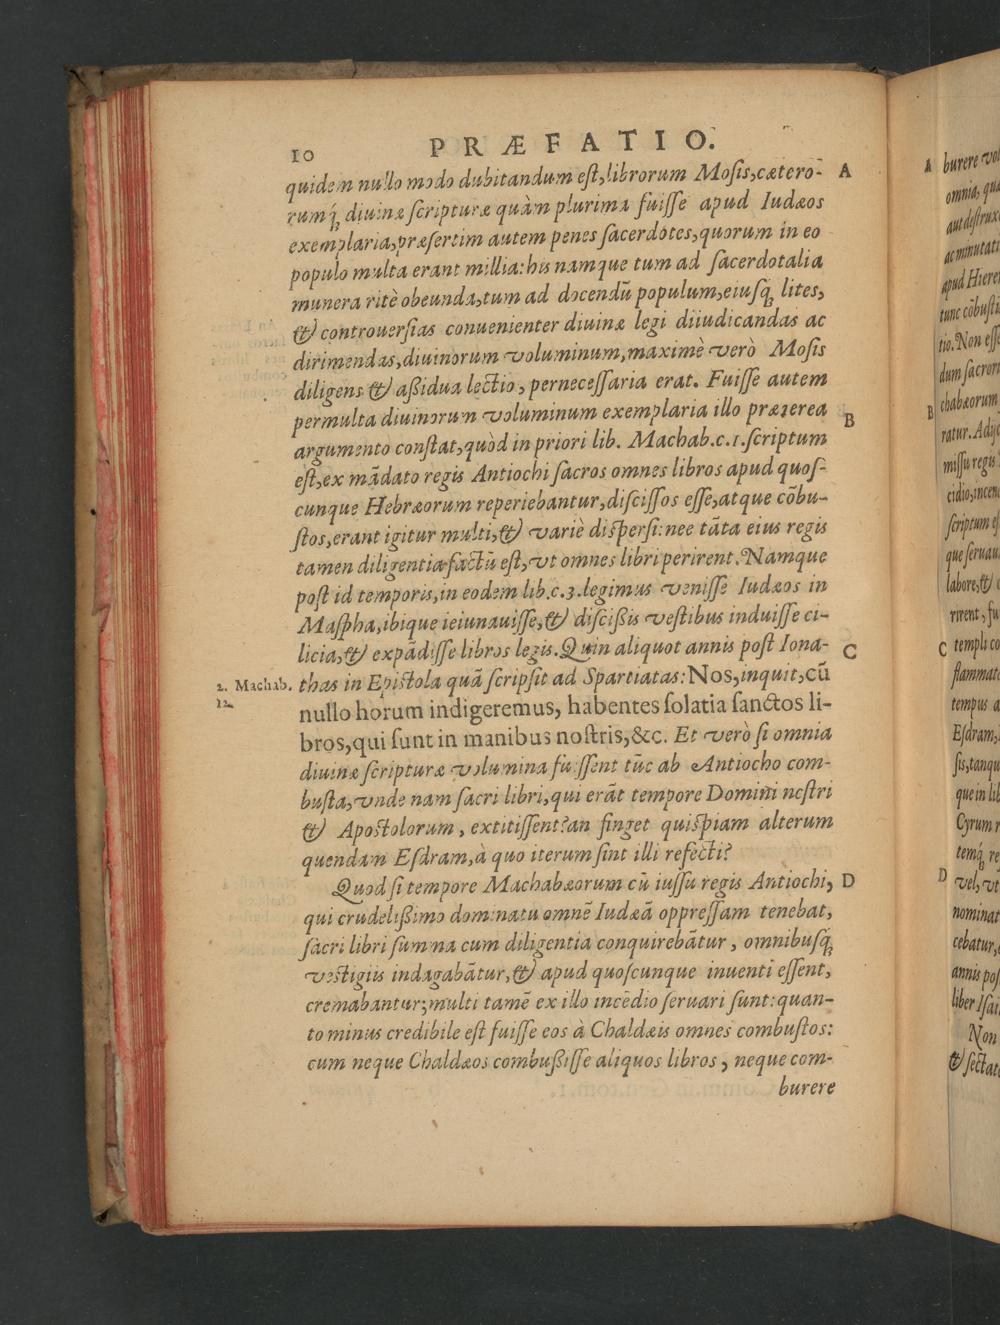 10 PRÆFATIO.
quidem nullo modo dubitandum est, librorum Mosis, cætero- A
rumq́ʒ diuinæ scripturæ quàm plurima fuisse apud Iudæos
exemplaria, præsertim autem penes sacerdótes, quorum in eo
populo multa erant millia: his namque tum ad sacerdotalia
munera ritè obeunda, tum ad docendū populum, eiusq́ʒ lites,
& controuersias conuenienter diuinæ legi diiudicandas ac
dirimendas, diuinorum voluminum, maximè verò Mosis
diligens & aßidua lectio, pernecessaria erat. Fuisse autem
permulta diuinorum voluminum exemplaria illo præterea
argumento constat, quòd in priori lib. Machab. c. 1. scriptum B
est, ex mādato regis Antiochi sacros omnes libros apud quos-
cunque Hebræorum reperiebantur, discissos esse, atque cōbu-
stos, erant igitur multi, & variè dispersi: nec tāta eius regis
tamen diligentia factū est, vt omnes libri perirent. Namque
post id temporis, in eodem lib. c. 3. legimus venisse Iudæos in
Maspha, ibique ieiunauisse, & discißis vestibus induisse ci-
licia, & expādisse libros legis. Quin aliquot annis post Iona- C
2. Machab. thas in Epistola quā scripsit ad Spartiatas: Nos, inquit, cū
12.
nullo horum indigeremus, habentes solatia sanctos li-
bros, qui sunt in manibus nostris, &c. Et verò si omnia
diuinæ scripturæ volumina fuissent tūc ab Antiocho com-
busta, vnde nam sacri libri, qui erāt tempore Domini nostri
& Apostolorum, extitissent? an finget quispiam alterum
quendam Esdram, à quo iterum sint illi refecti?
Quod si tempore Machabæorum cū iussu regis Antiochi, D
qui crudelißimo dominatu omnē Iudæā oppressam tenebat,
sacri libri summa cum diligentia conquirebātur, omnibusq́ʒ
vestigiis indagabātur, & apud quoscunque inuenti essent,
cremabantur; multi tamē ex illo incēdio seruari sunt: quan-
to minus credibile est fuisse eos à Chaldæis omnes combustos:
cum neque Chaldæos combußisse aliquos libros, neque com-
burere
A burere
omnia,
aut
ac minutati
apud Hiere
tunc cōbusti
tio. Non esse
dum sacror
chabæorum
B ratur.
missu regis
cidio, incen
scriptum
que seruau
labore, &
rirent, fu
C templi co
flammat
tempus a
Esdram,
sis, tanqu
que in lib
Cyrum
temq́ʒ re
D vel, vt
nominat
cebatur,
annis pos
liber Isai
Non
& sectat